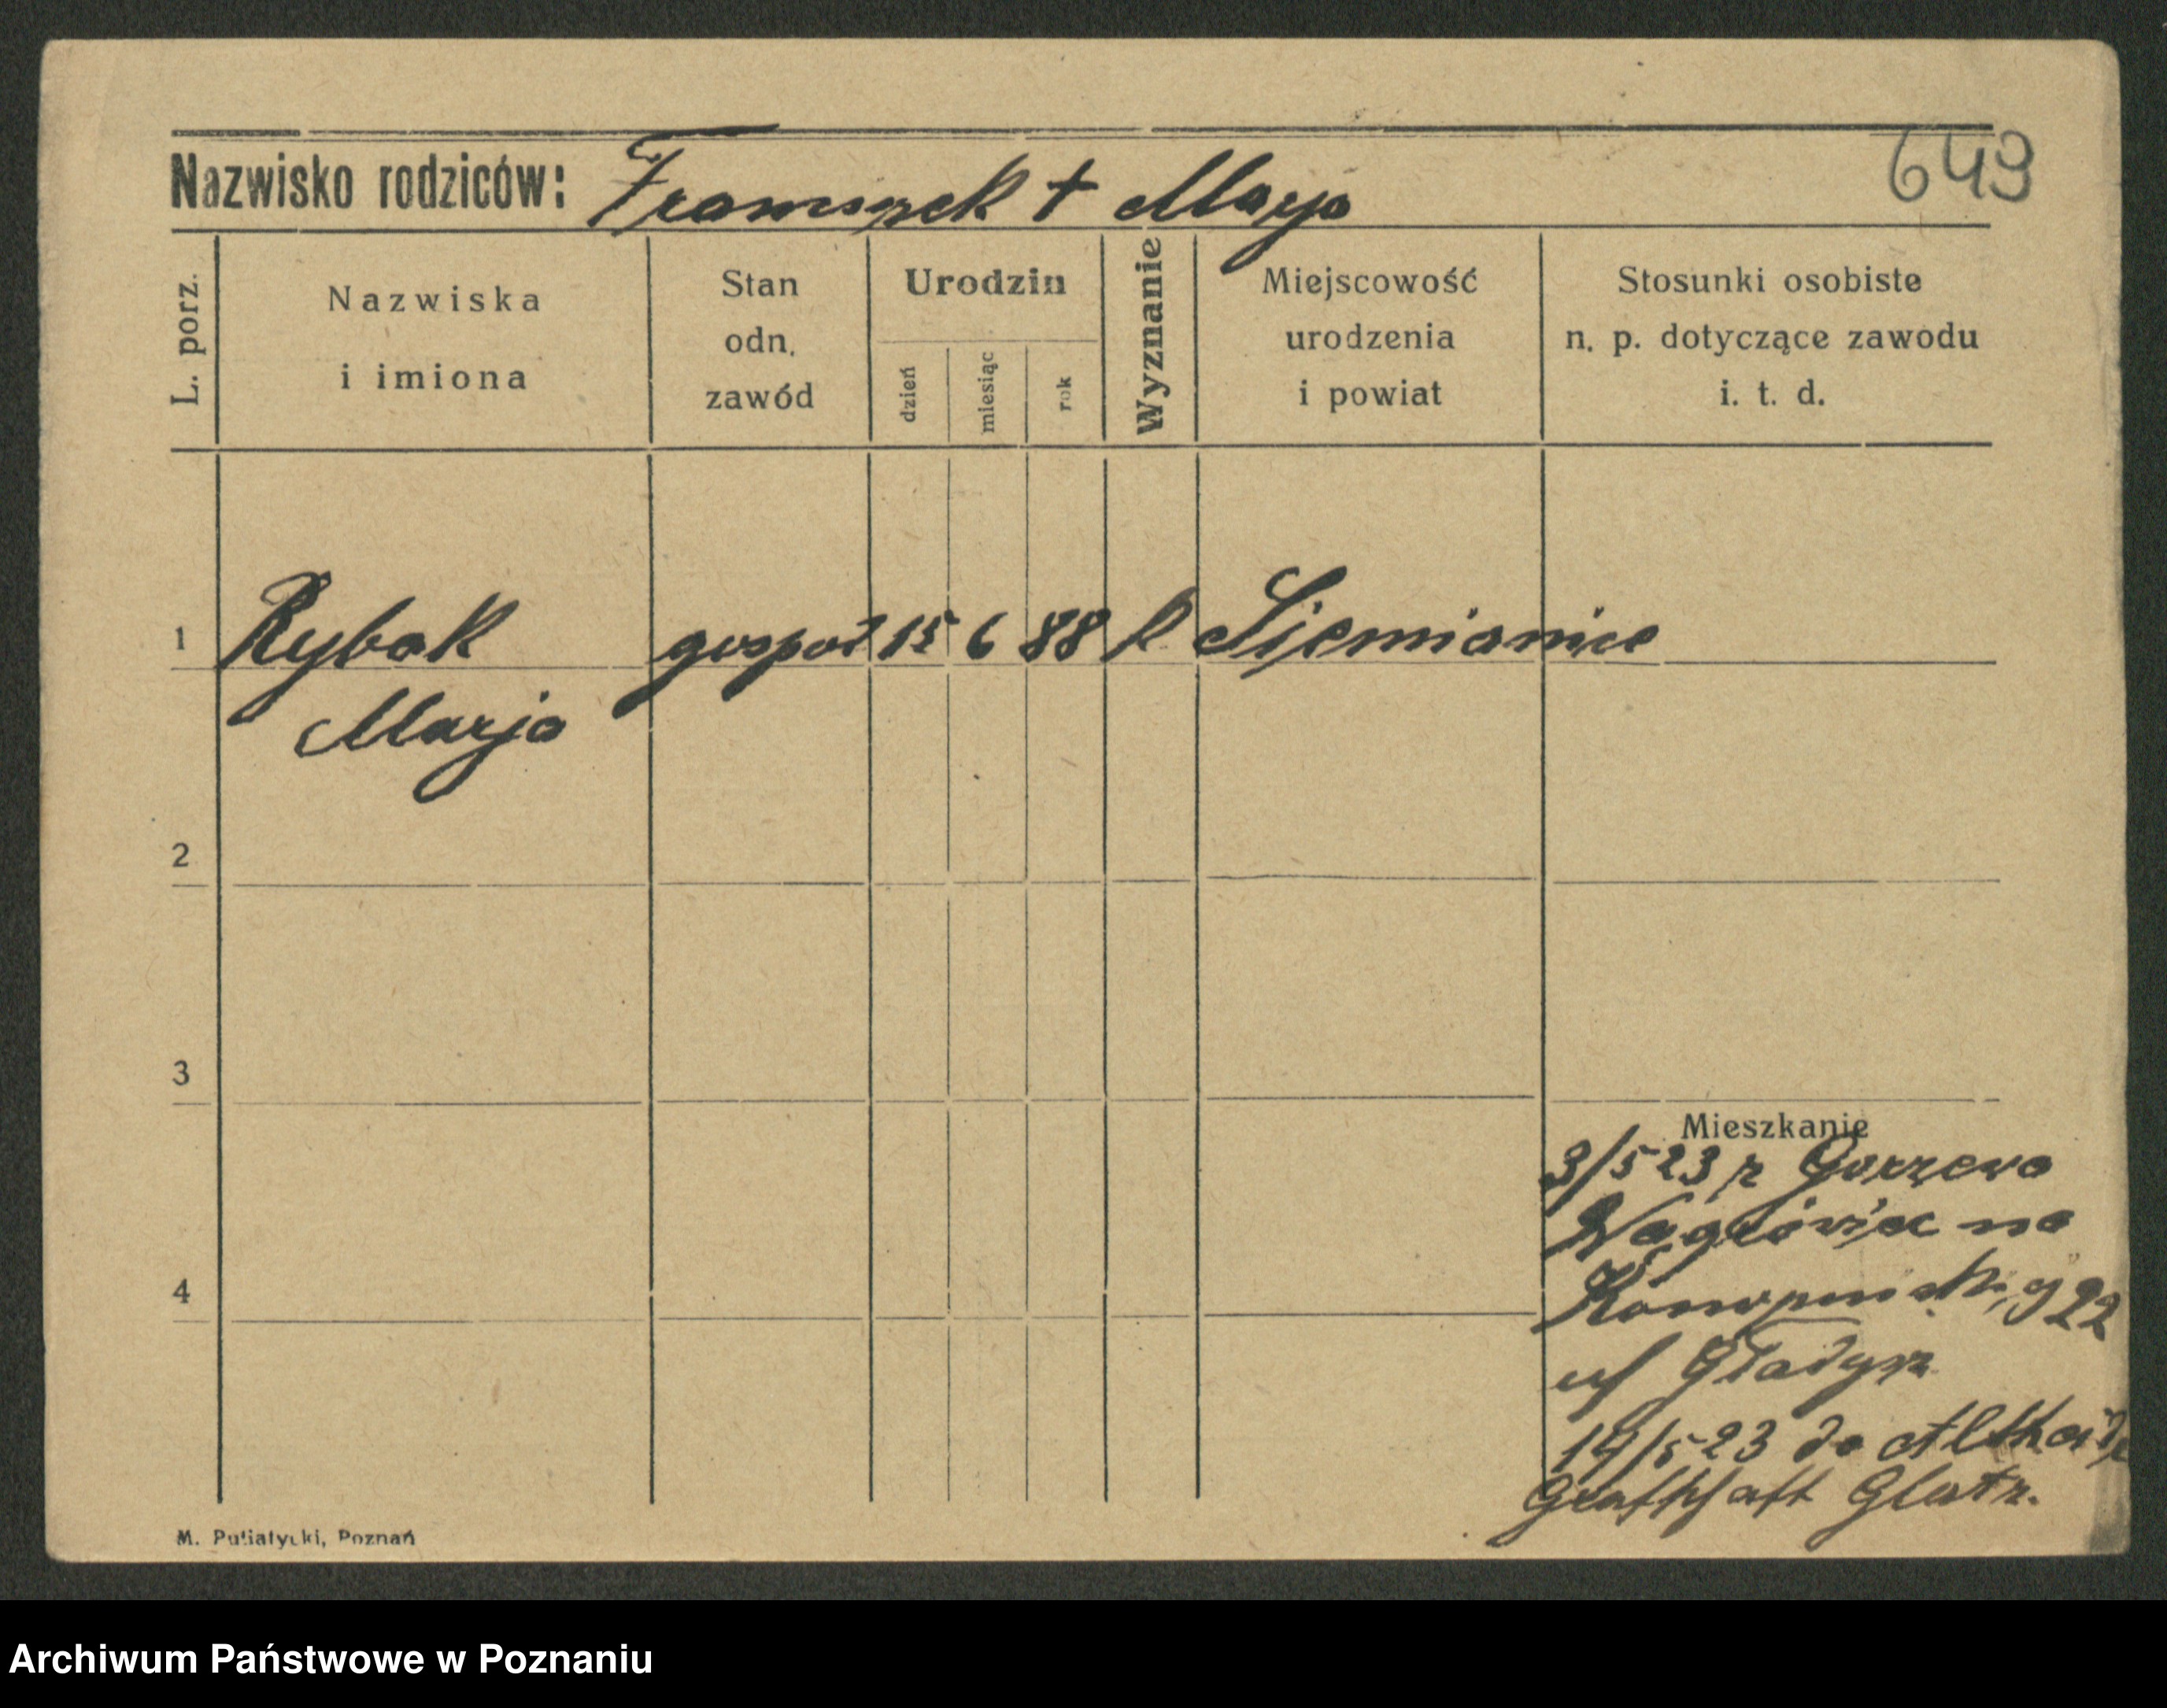 649
Nazwisko rodziców: Franciszek + Marja
L. porz.
Nazwiska i imiona
Stan odn. zawód
Urodzin
dzień
miesiąc
rok
Wyznanie
Miejscowość urodzenia i powiat
Stosunki osobiste n. p. dotyczące zawodu i. t. d.
1 Rybak gospod 15 6 88 k Siemianice
Marja
2
3
Mieszkanie
3/5 23 z Gorzewo
Wągrówiec na
4
22
Gładysz
14/5 23 do Altheide
Grafschaft Glatz.
M. Putiatycki, Poznań
Archiwum Państwowe w Poznaniu